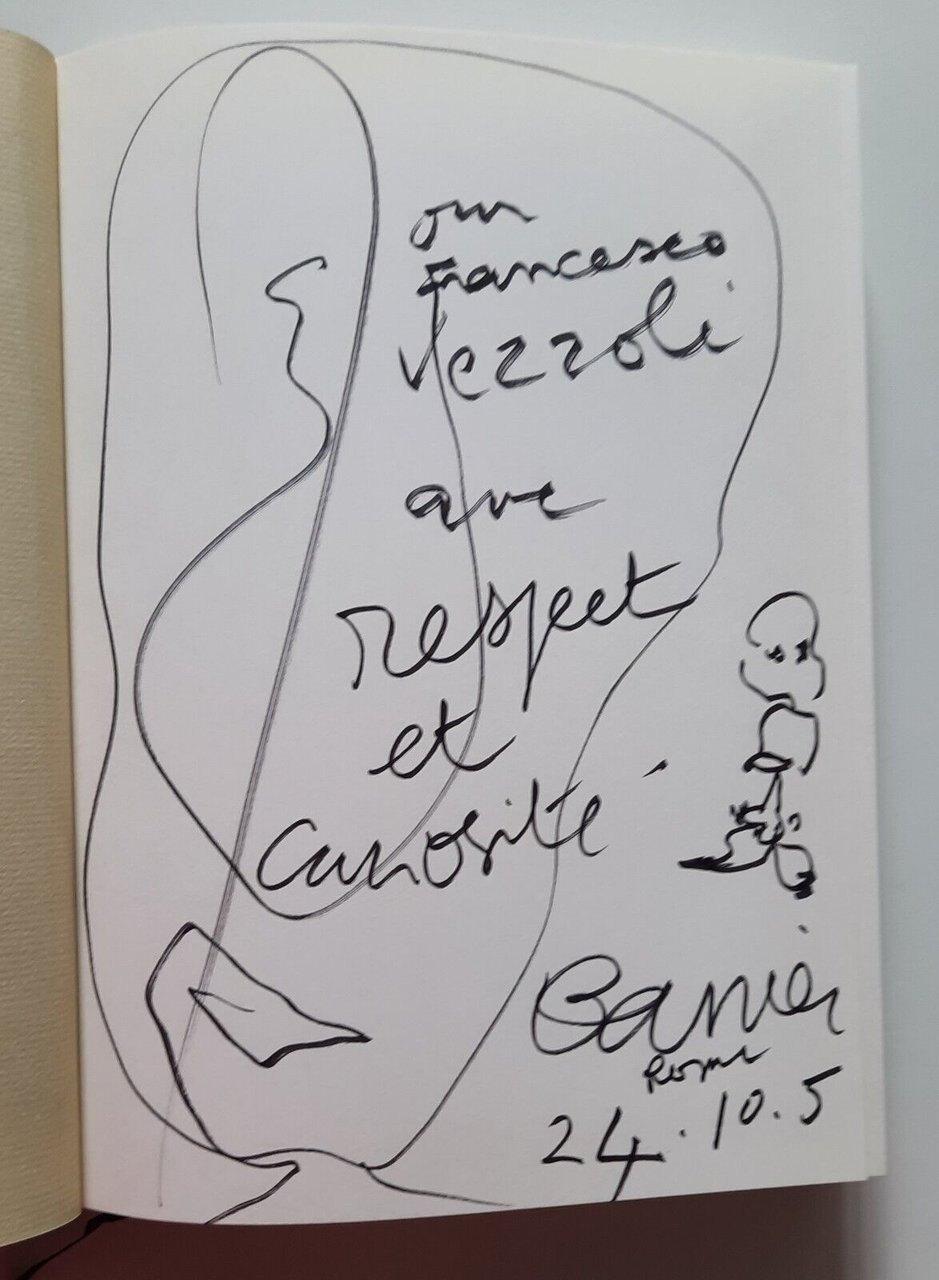 Francesco
Vezzoli
avec
respect
et
curiosité
Banier
Rome
24.10.5